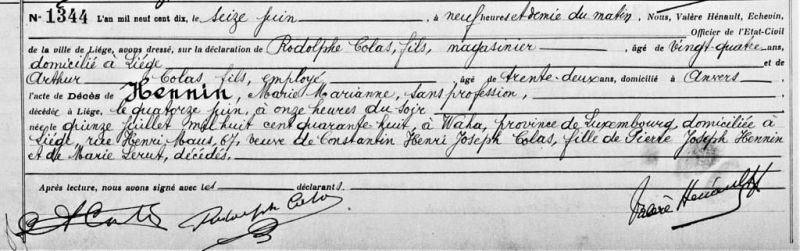 N° 1344 L'an mil neuf cent dix, le seize juin, à neuf heures et demie du matin. Nous, Valère Hénault, Echevin,
Officier de l'Etat-Civil
de la ville de Liége, avons dressé, sur la déclaration de Rodolphe Colas, fils, magasinier, âgé de vingt-quatre ans,
domicilié à Liége et de
Arthur Colas, fils, employé âgé de trente-deux ans, domicilié à Anvers
l'acte de Décès de Hennin, Marie Marianne, sans profession,
décédée à Liége, le quatorze juin, à onze heures du soir
née le quinze juillet mil huit cent quarante huit, à Waha, province de Luxembourg, domiciliée à
Liége, rue Henri Maus, 67, veuve de Constantin Henri Joseph Colas, fille de Pierre Joseph Hennin
et de Marie Lerut, décédés.
Après lecture, nous avons signé avec les déclarants.
Rodolphe Colas Valère Hénault